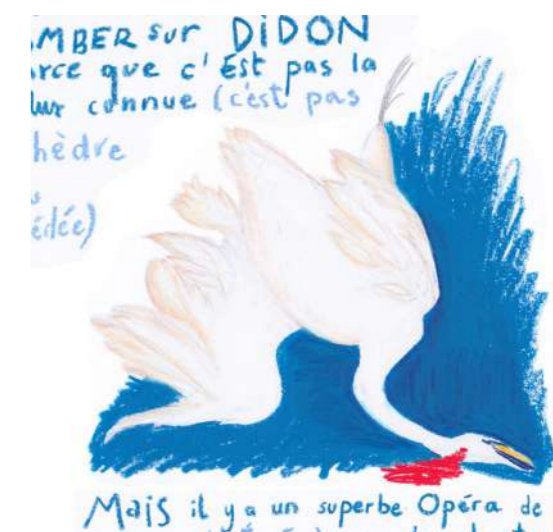 MBER sur DIDON
rce que c'Est pas la
lus connue (c'est pas
hèdre
s
édée)
Mais il y a un superbe Opéra de